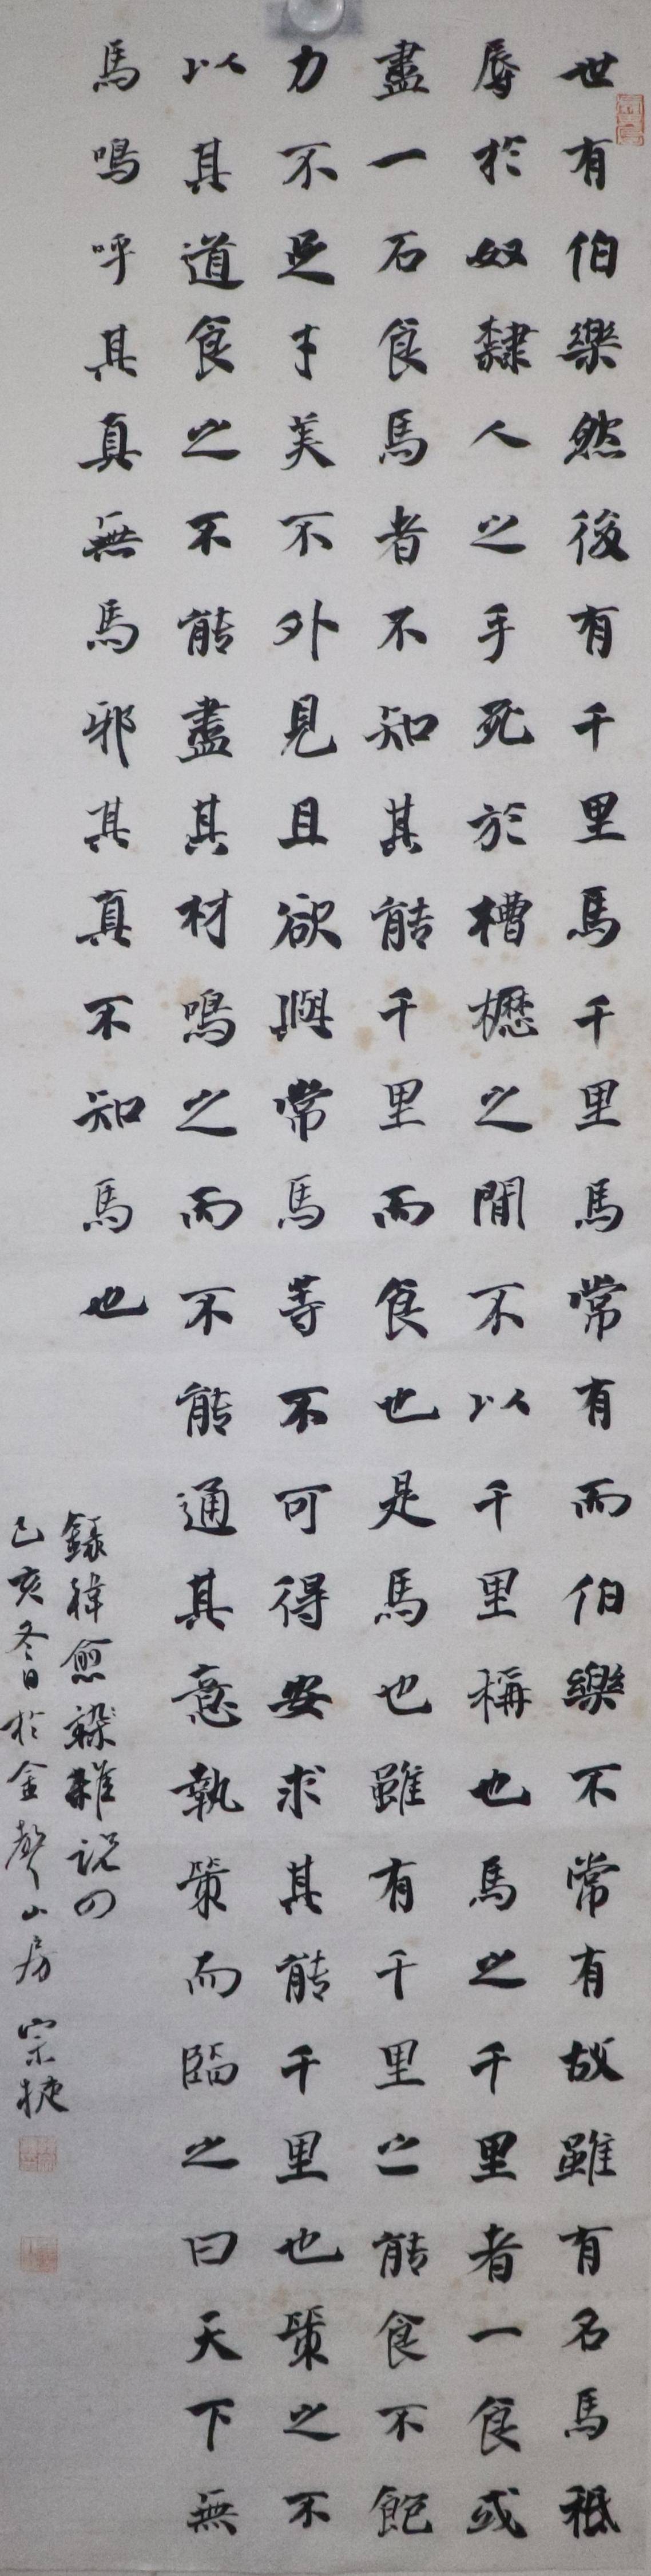 世有伯樂然後有千里馬千里馬常有而伯樂不常有故雖有名馬秪
辱於奴隸人之手死於槽櫪之間不以千里稱也馬之千里者一食或
盡一石食馬者不知其能千里而食也是馬也雖有千里之能食不飽
力不足才美不外見且欲與常馬等不可得安求其能千里也策之不
以其道食之不能盡其材鳴之而不能通其意執策而臨之曰天下無
馬鳴呼其真無馬邪其真不知馬也
錄韓愈雜雜說四
己亥冬日於金聲山房 宗捷